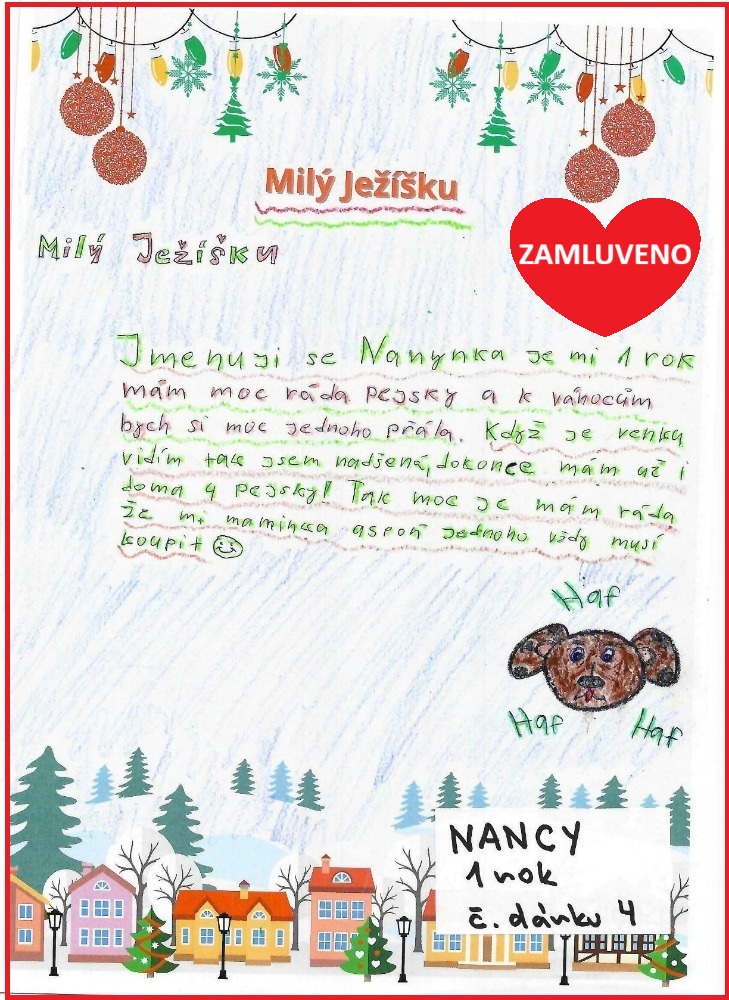 Milý Ježíšku
ZAMLUVENO
Milý Ježíšku
Jmenuji se Nanynka je mi 1 rok
mám moc ráda pejsky a k vánocům
bych si moc jednoho přála. Když je venku
vidím tak jsem nadšená, dokonce mám už i
doma 4 pejsky! Tak moc je mám ráda
že mi maminka aspoň jednoho vždy musí
koupit
Haf
Haf Haf
NANCY
1 rok
č. dárku 4